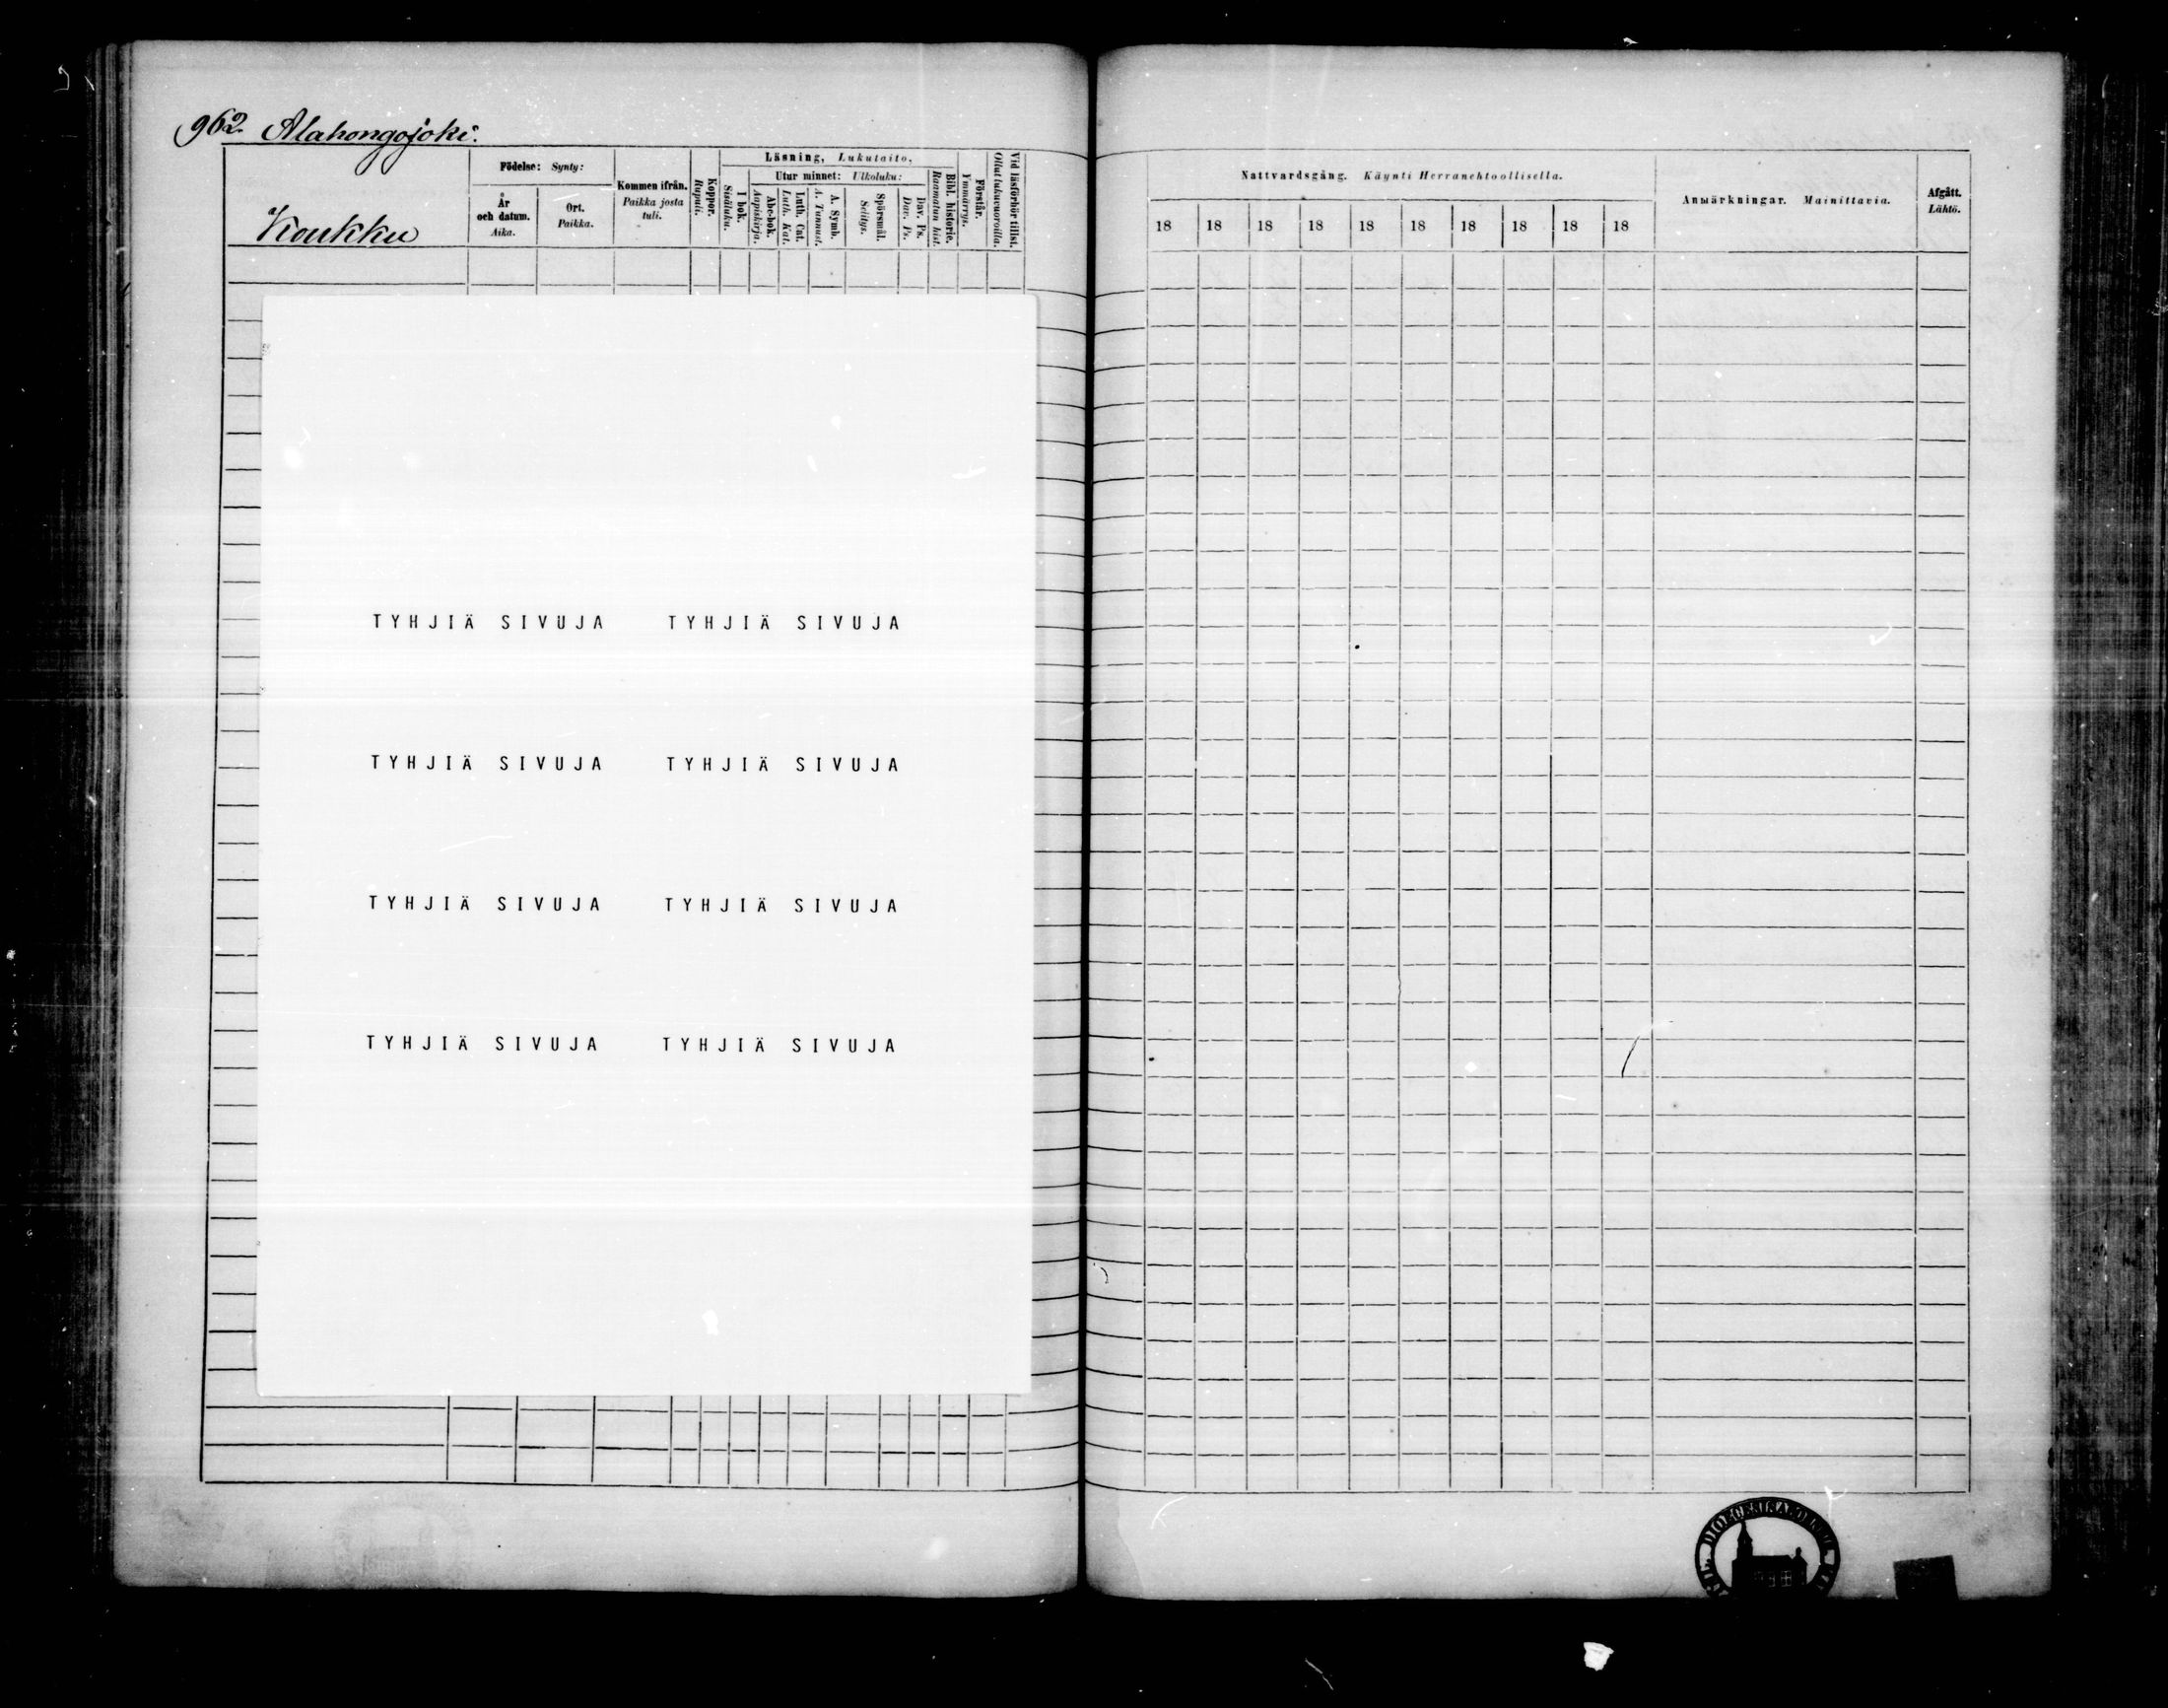 962 Alahongojoki.
Koukku
Födelse: Synty:
År och datum. Aika.
Ort. Paikka.
Kommen ifrån. Paikka josta tuli.
Koppor. Rupuli.
Läsning, Lukutaito,
I bok. Sisäluku.
Utur minnet: Ulkoluku:
Abc-bok. Aapiskirja.
Luth. Cat. Luth. Kat.
A. Symb. A. Tunnust.
Spörsmål. Selitys.
Dav. Ps. Dav. Ps.
Bibl. historie. Raamatun hist.
Förstår. Ymmärrys.
Vid läsförhör tillst. Ollut lukuvuoroilla.
Nattvardsgång. Käynti Herranehtoollisella.
18 18 18 18 18 18 18 18 18 18
Anmärkningar. Mainittavia.
Afgått. Lähtö.
TYHJIÄ SIVUJA TYHJIÄ SIVUJA
TYHJIÄ SIVUJA TYHJIÄ SIVUJA
TYHJIÄ SIVUJA TYHJIÄ SIVUJA
TYHJIÄ SIVUJA TYHJIÄ SIVUJA